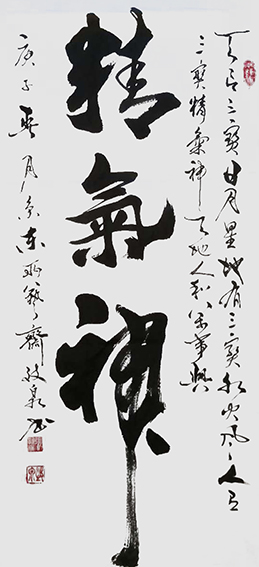 天有三寶日月星地有三寶水火風人有
三寶精氣神天地人和萬事興
精氣神
庚子 月 東 齋 泉